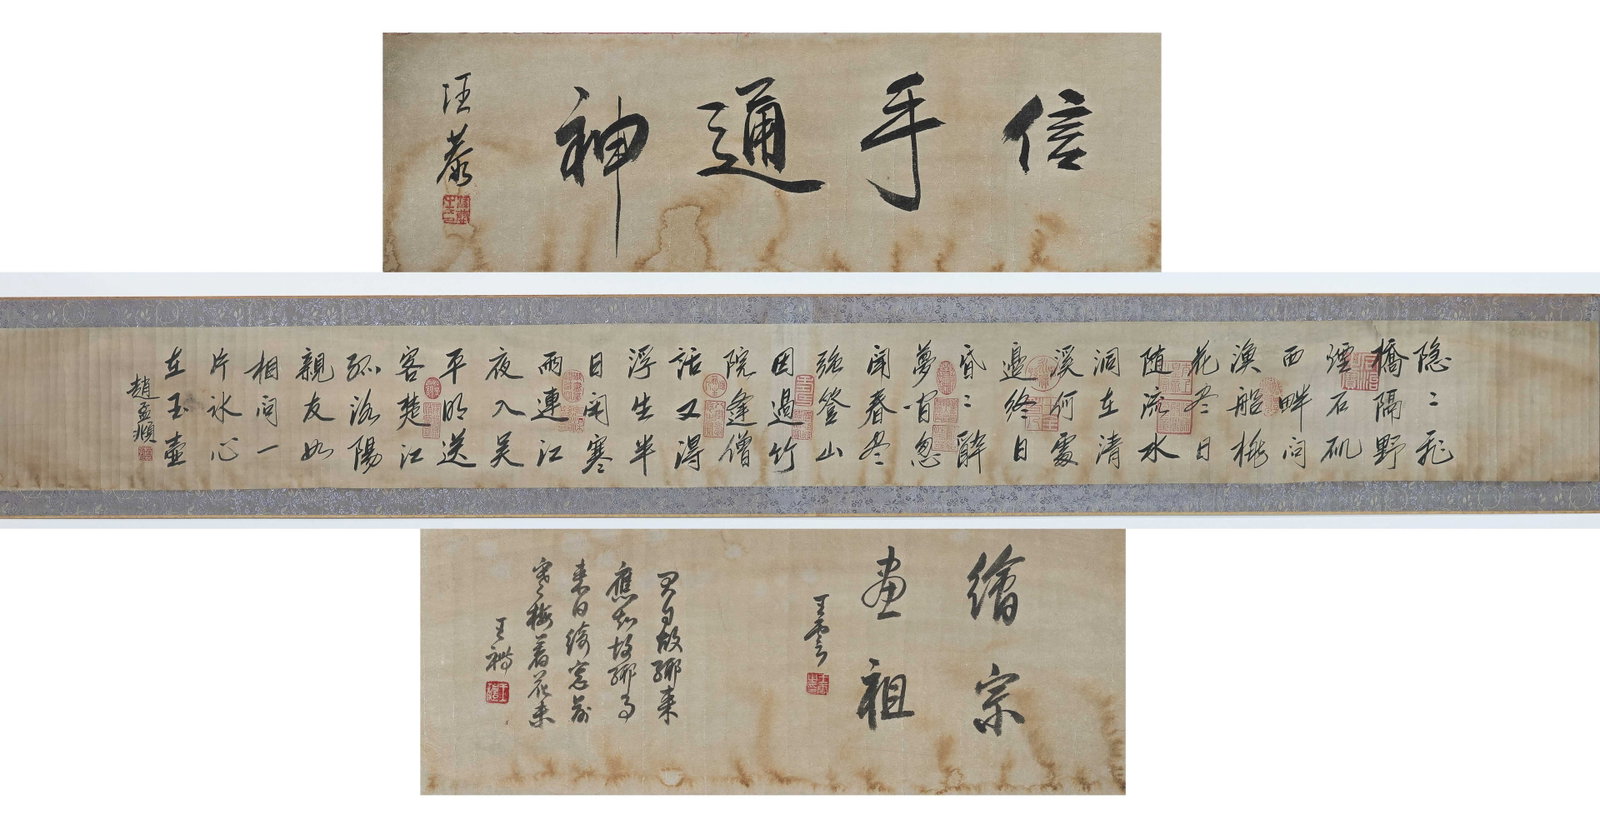 信手通神
汪恭
隐〻飛
橋隔野
煙石矶
西畔问
漁船桃
花尽日
随流水
洞在清
溪何處
邊终日
昏〻醉
夢间忽
闻春尽
强登山
因過竹
院逢僧
話又得
浮生半
日闲寒
雨連江
夜入吴
平明送
客楚江
孤洛陽
親友如
相问一
片冰心
在玉壶
趙孟頫
繪宗
画祖
王雲
君自故鄉来
應知故鄉事
来日綺窓前
寒梅著花未